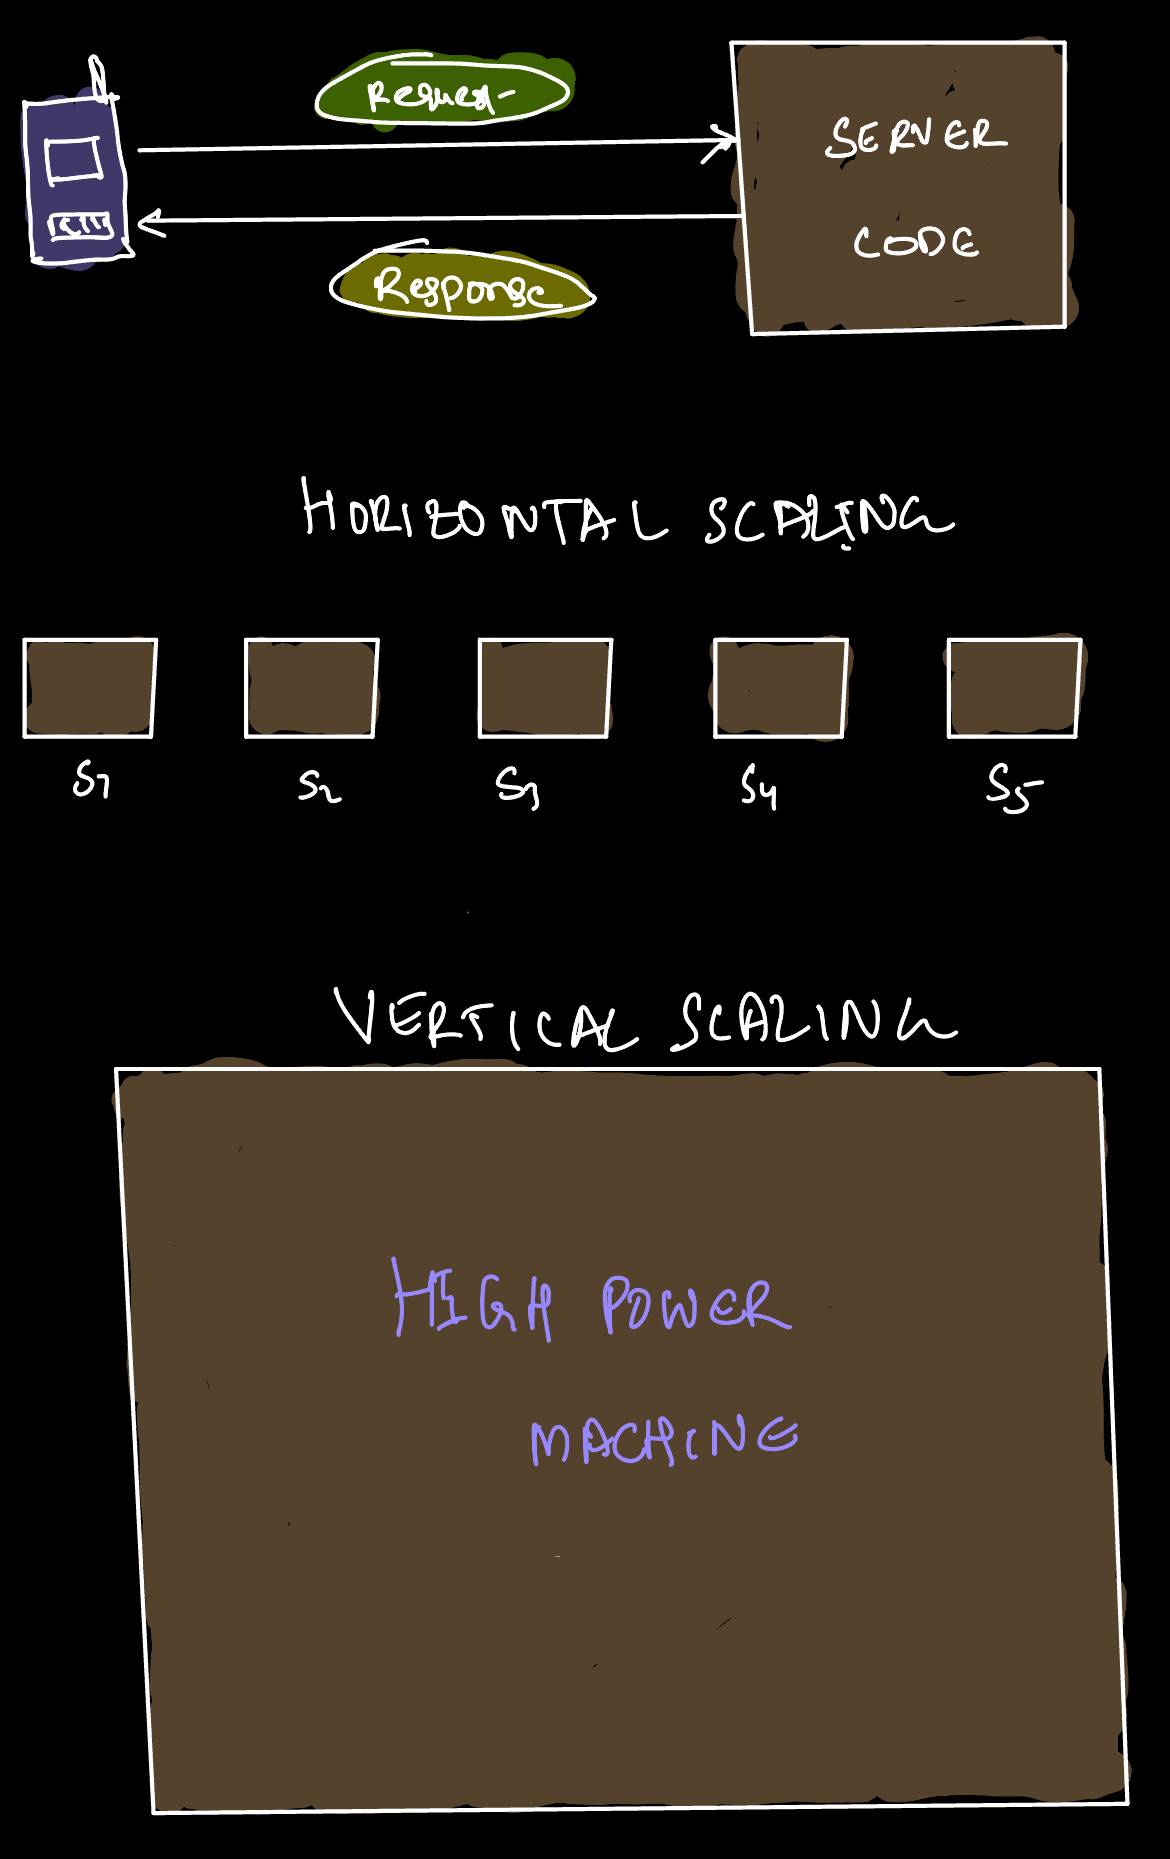 Request
SERVER
CODE
Response
HORIZONTAL SCALING
S1 S2 S3 S4 S5
VERTICAL SCALING
HIGH POWER
MACHINE